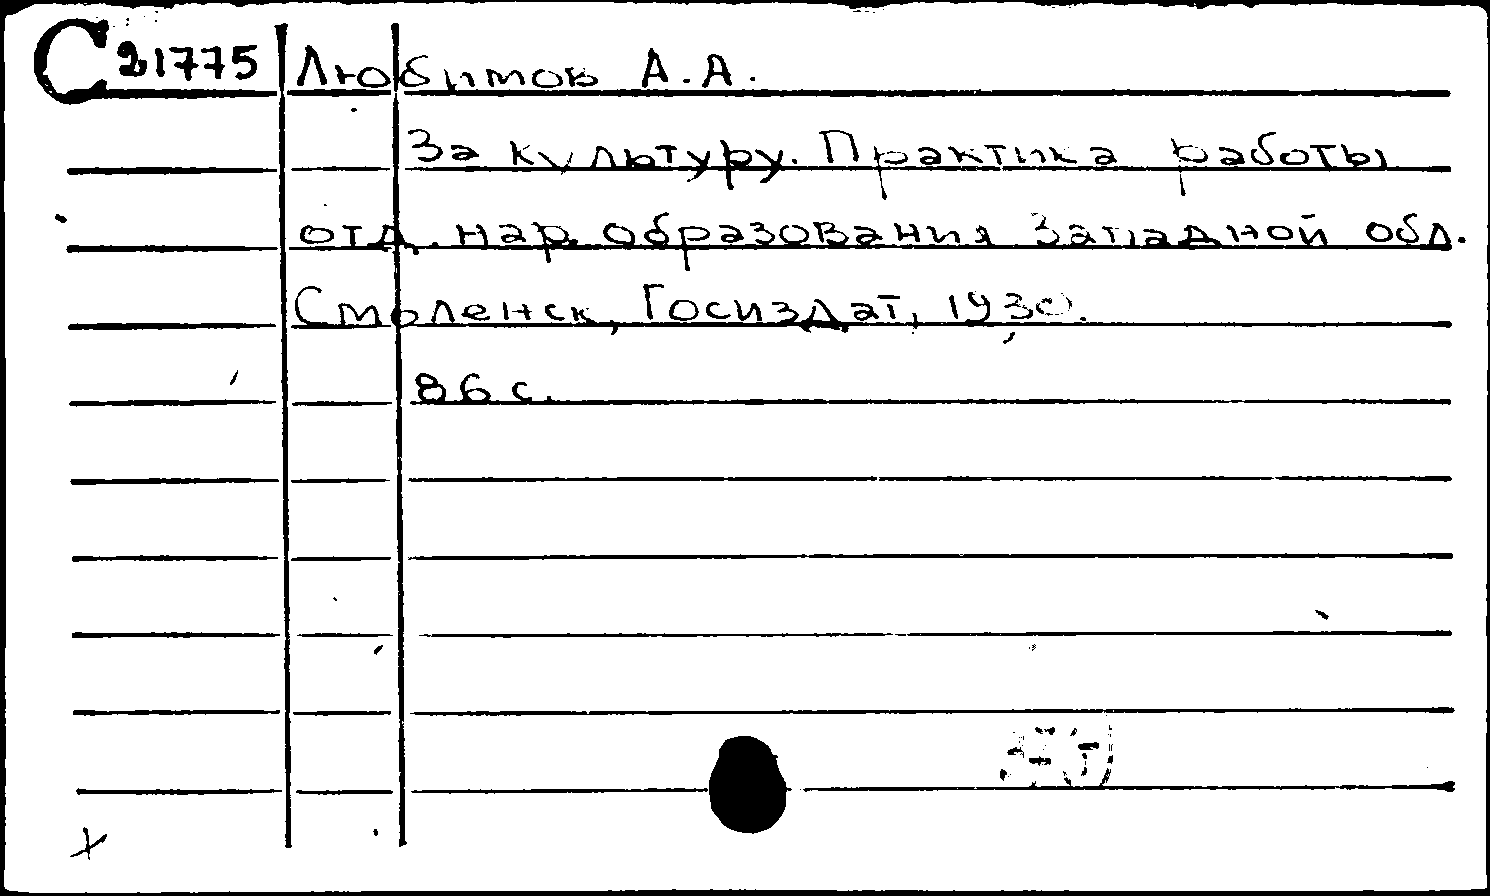 С 21775 Любимов А.А.
За культуру. Практика работы
отд. нар. образования Западной обл.
Смоленск, Госиздат, 1930.
86 с.